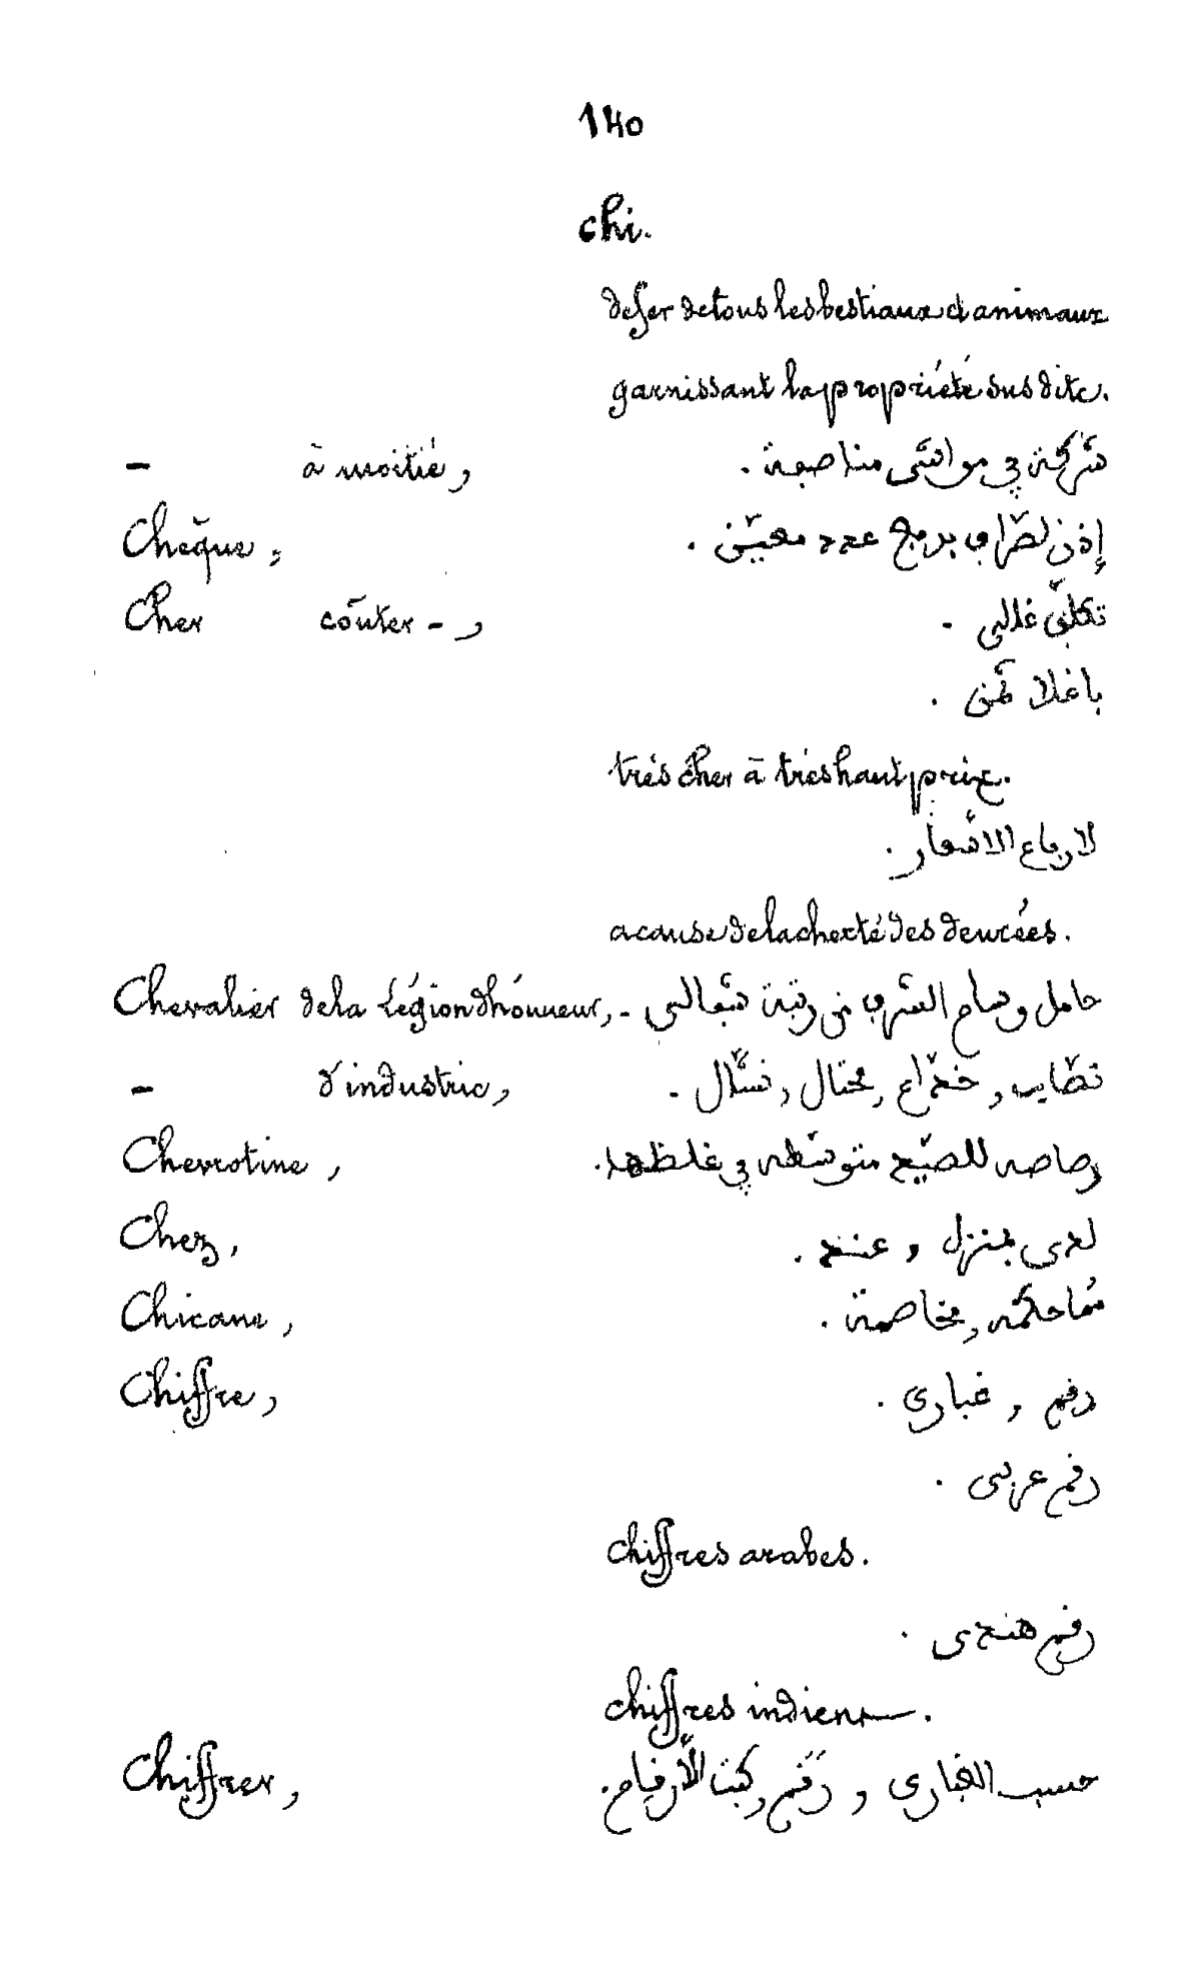 140
chi.
de fer de tous les bestiaux et animaux
garnissant la propriété sus dite.
– à moitié, شركة في مواشي مناصفة .
Chèque, إذن لصرّاف بدفع عدد معيّن .
Cher coûter - , تكلّف غالي .
باغلا ثمن .
très cher à très haut prix.
لارتفاع الاسعار .
a cause de la cherté des denrées.
Chevalier de la Légion d'hónneur, - حامل وسام الشرف من رتبة شبالي
– d'industrie, نصّاب , خدّاع , محتال , نشّال .
Chevrotine, رصاصه للصيد متوسّطه في غلظها .
Chez, لدى بمنزل , عند .
Chicane, مماحكه , مخاصمة .
Chiffre, رقم , غباري .
رقم عربي .
Chiffres arabes.
رقم هندى .
chiffres indiens.
Chiffrer, حسب الغباري , رَقَم , كتب الأرقام .